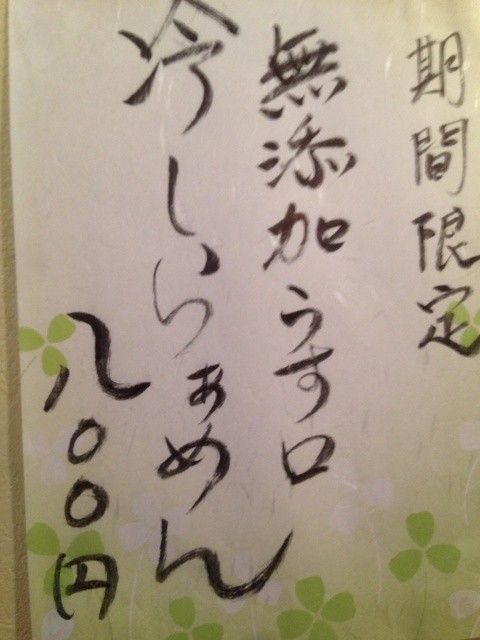 期間限定
無添加うす口
冷しらぁめん
八〇〇円